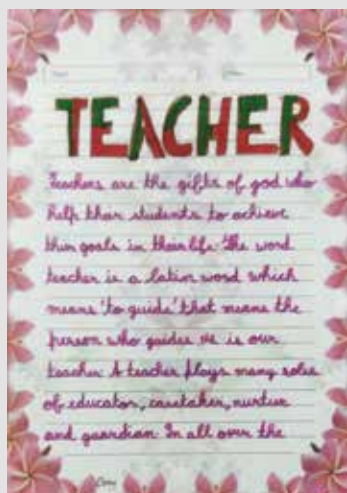 TEACHER
Teachers are the gifts of god who
help their students to achieve
thin goals in their life. The word
teacher is a latin word which
means 'to guide' that means the
person who guides us is our
teacher. A teacher plays many roles
of educator, caretaker, nurture
and guardian. In all over the